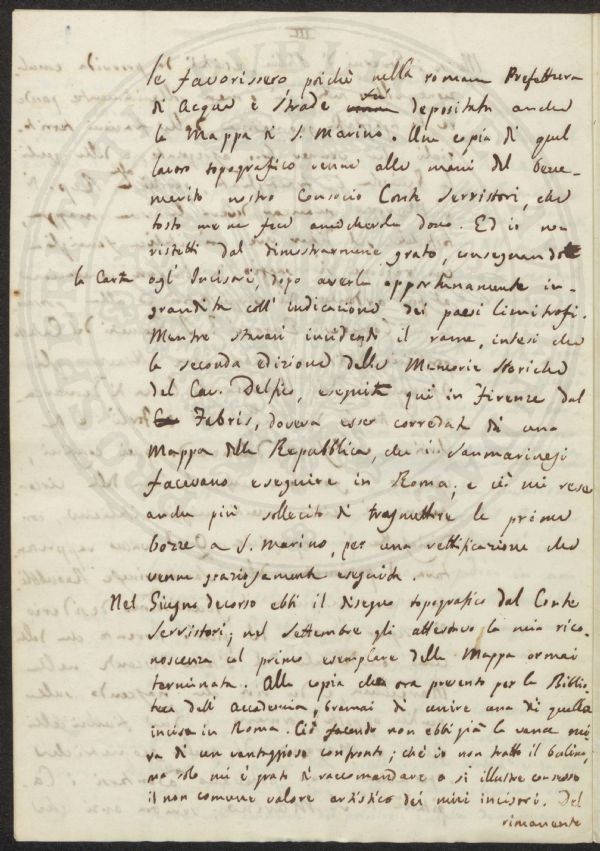 III
le favorissero poichè nella romana Prefettura
di Acque e Strade fu depositata anche
la Mappa di S. Marino. Una copia di quel
lavoro topografico venne alle mani del bene-
merito nostro Consocio Conte Servistori, che
tosto me ne fece amichevole dono. Ed io non
ristetti dal dimostrarmene grato, consegnando
la Carta agl' Incisori, dopo averla opportunamente in-
grandita coll' indicazione dei paesi limitrofi.
Mentre stavasi incidendo il rame, intesi che
la seconda edizione delle Memorie storiche
del Cav. Delfico, eseguita quì in Firenze dal
Fabris, doveva esser corredata di una
Mappa della Repubblica, che i Sanmarinesi
facevano eseguire in Roma; e ciò mi rese
anche più sollecito di trasmettere le prime
bozze a S. Marino, per una rettificazione che
venne graziosamente eseguita.
Nel Giugno decorso ebbi il disegno topografico dal Conte
Servistori; nel Settembre gli attestavo la mia rico-
noscenza col primo esemplare della Mappa ormai
terminata. Alla copia che ora presento per la Biblio-
teca dell' Accademia, bramai di unire una di quelle
incise in Roma. Ciò facendo non ebbi già la vana mi-
ra di un vantaggioso confronto; chè io non tratto il bulino,
ma solo mi è grato di raccomandare a sì illustre consesso
il non comune valore artistico dei miei incisori. Del
rimanente